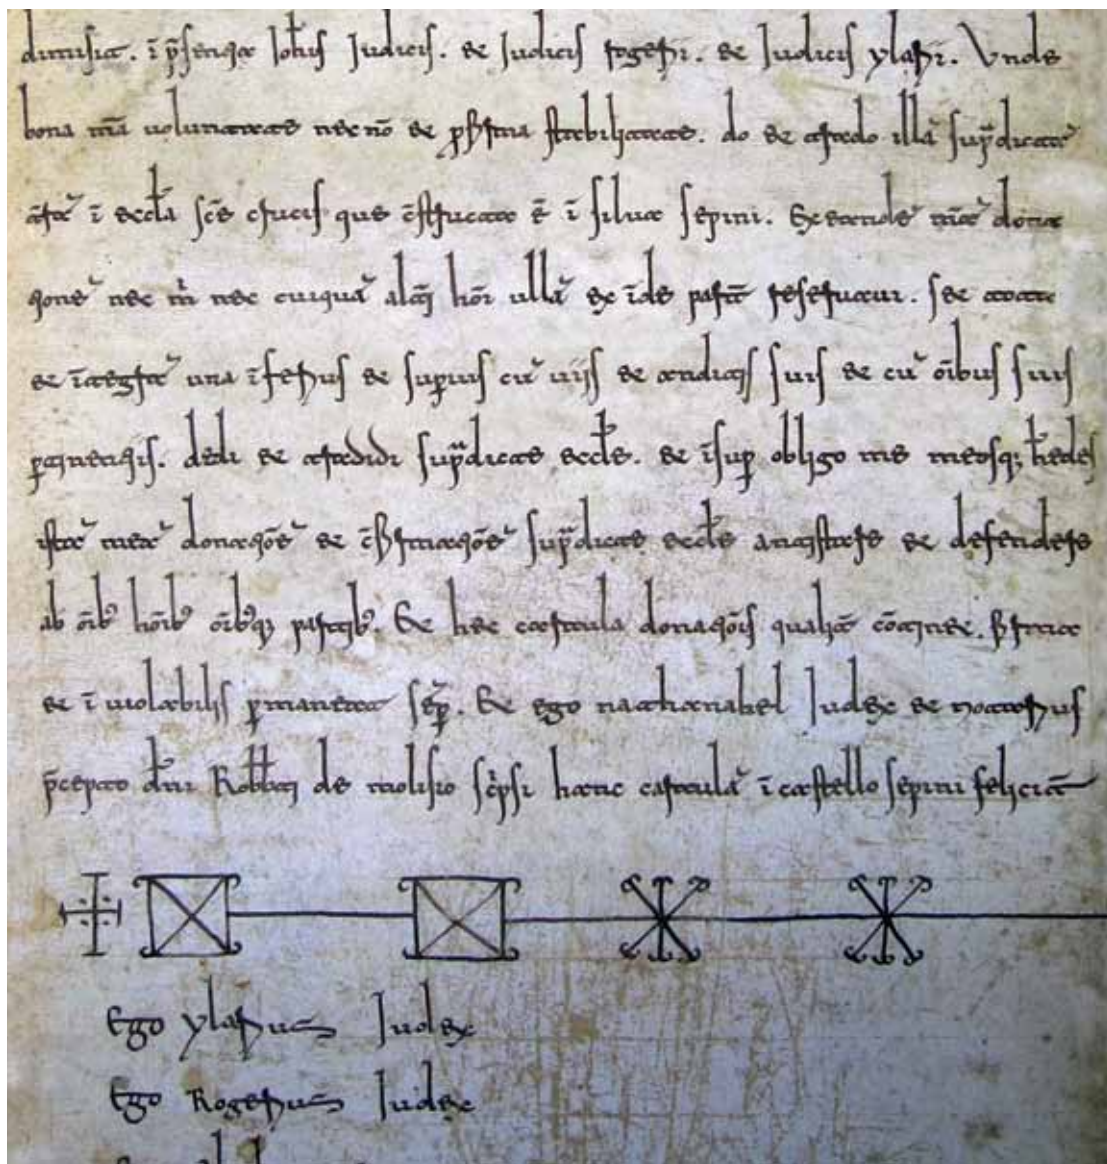 dimisit. ī p̄sentia Joh̄is Judicis. et Judicis rogerii. et Judicis ylarii. Vnde
bona m̄a voluntate necnō et p̱firma stabilitate. do et trado illā sup̱dictā
t̄rā ī eccl̄a sc̄e crucis que c̄structa ē ī silua sepini. Et tandē m̄ā dona
tionē nec m̄ nec cuiquā alc̄i hōi ullā ex īde partē reseruaui. sec tota
et ītegrā una īferius et superius cū uiis et anditis suis et cū ōibus suis
ꝑtinentiis. dedi et tradidi sup̱dicte eccl̄e. et īsuꝑ obligo me meosq; h̄edes
istā meā donatiōē et c̄firmatiōē sup̱dicte eccl̄e antistare et defendere
ab ōib' hōib' ōib'q; partib'. Et hec cartula donatiōis qualit̄ cōtinet. firma
et ī uiolabilis ꝑmaneat sēꝑ. Et ego nathanahel Judex et notarius
p̄cepto d̄ni Robb̄ti de molisio sc̄psi hanc cartulā ī castello sepini felicit̄
Ego Ylarius Judex
Ego Rogerius Judex